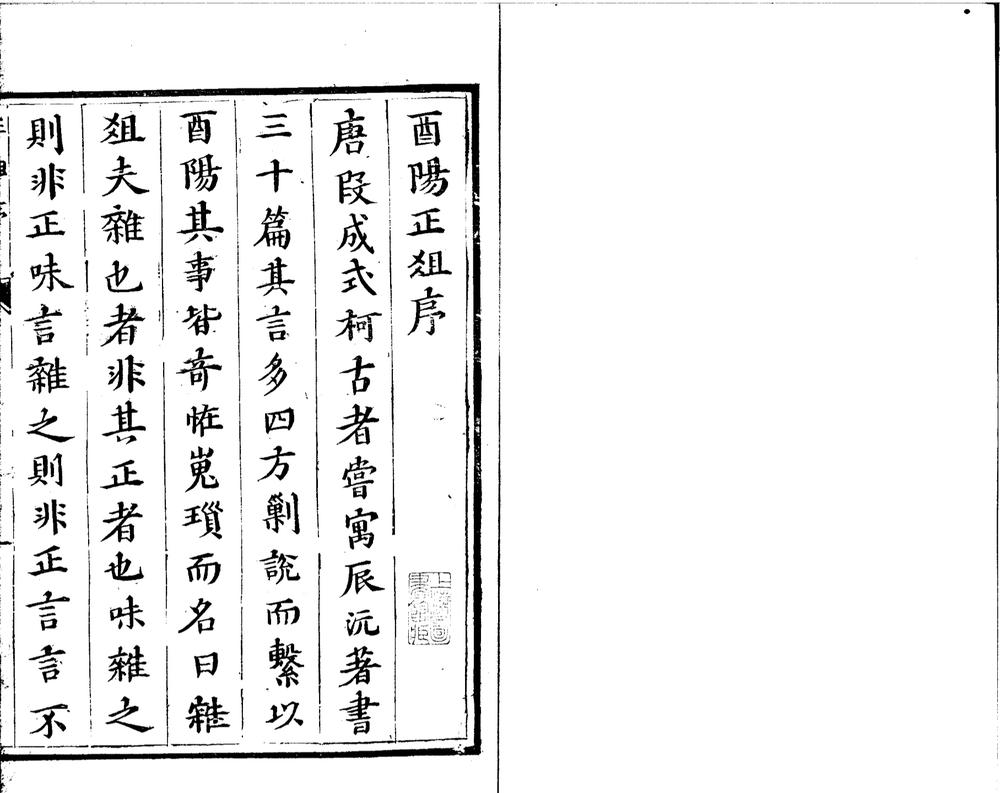 酉陽正俎序
唐段成式柯古者嘗寓辰沅著書
三十篇其言多四方剿說而繫以
酉陽其事皆奇恠嵬瑣而名曰雜
俎夫雜也者非其正者也味雜之
則非正味言雜之則非正言言不